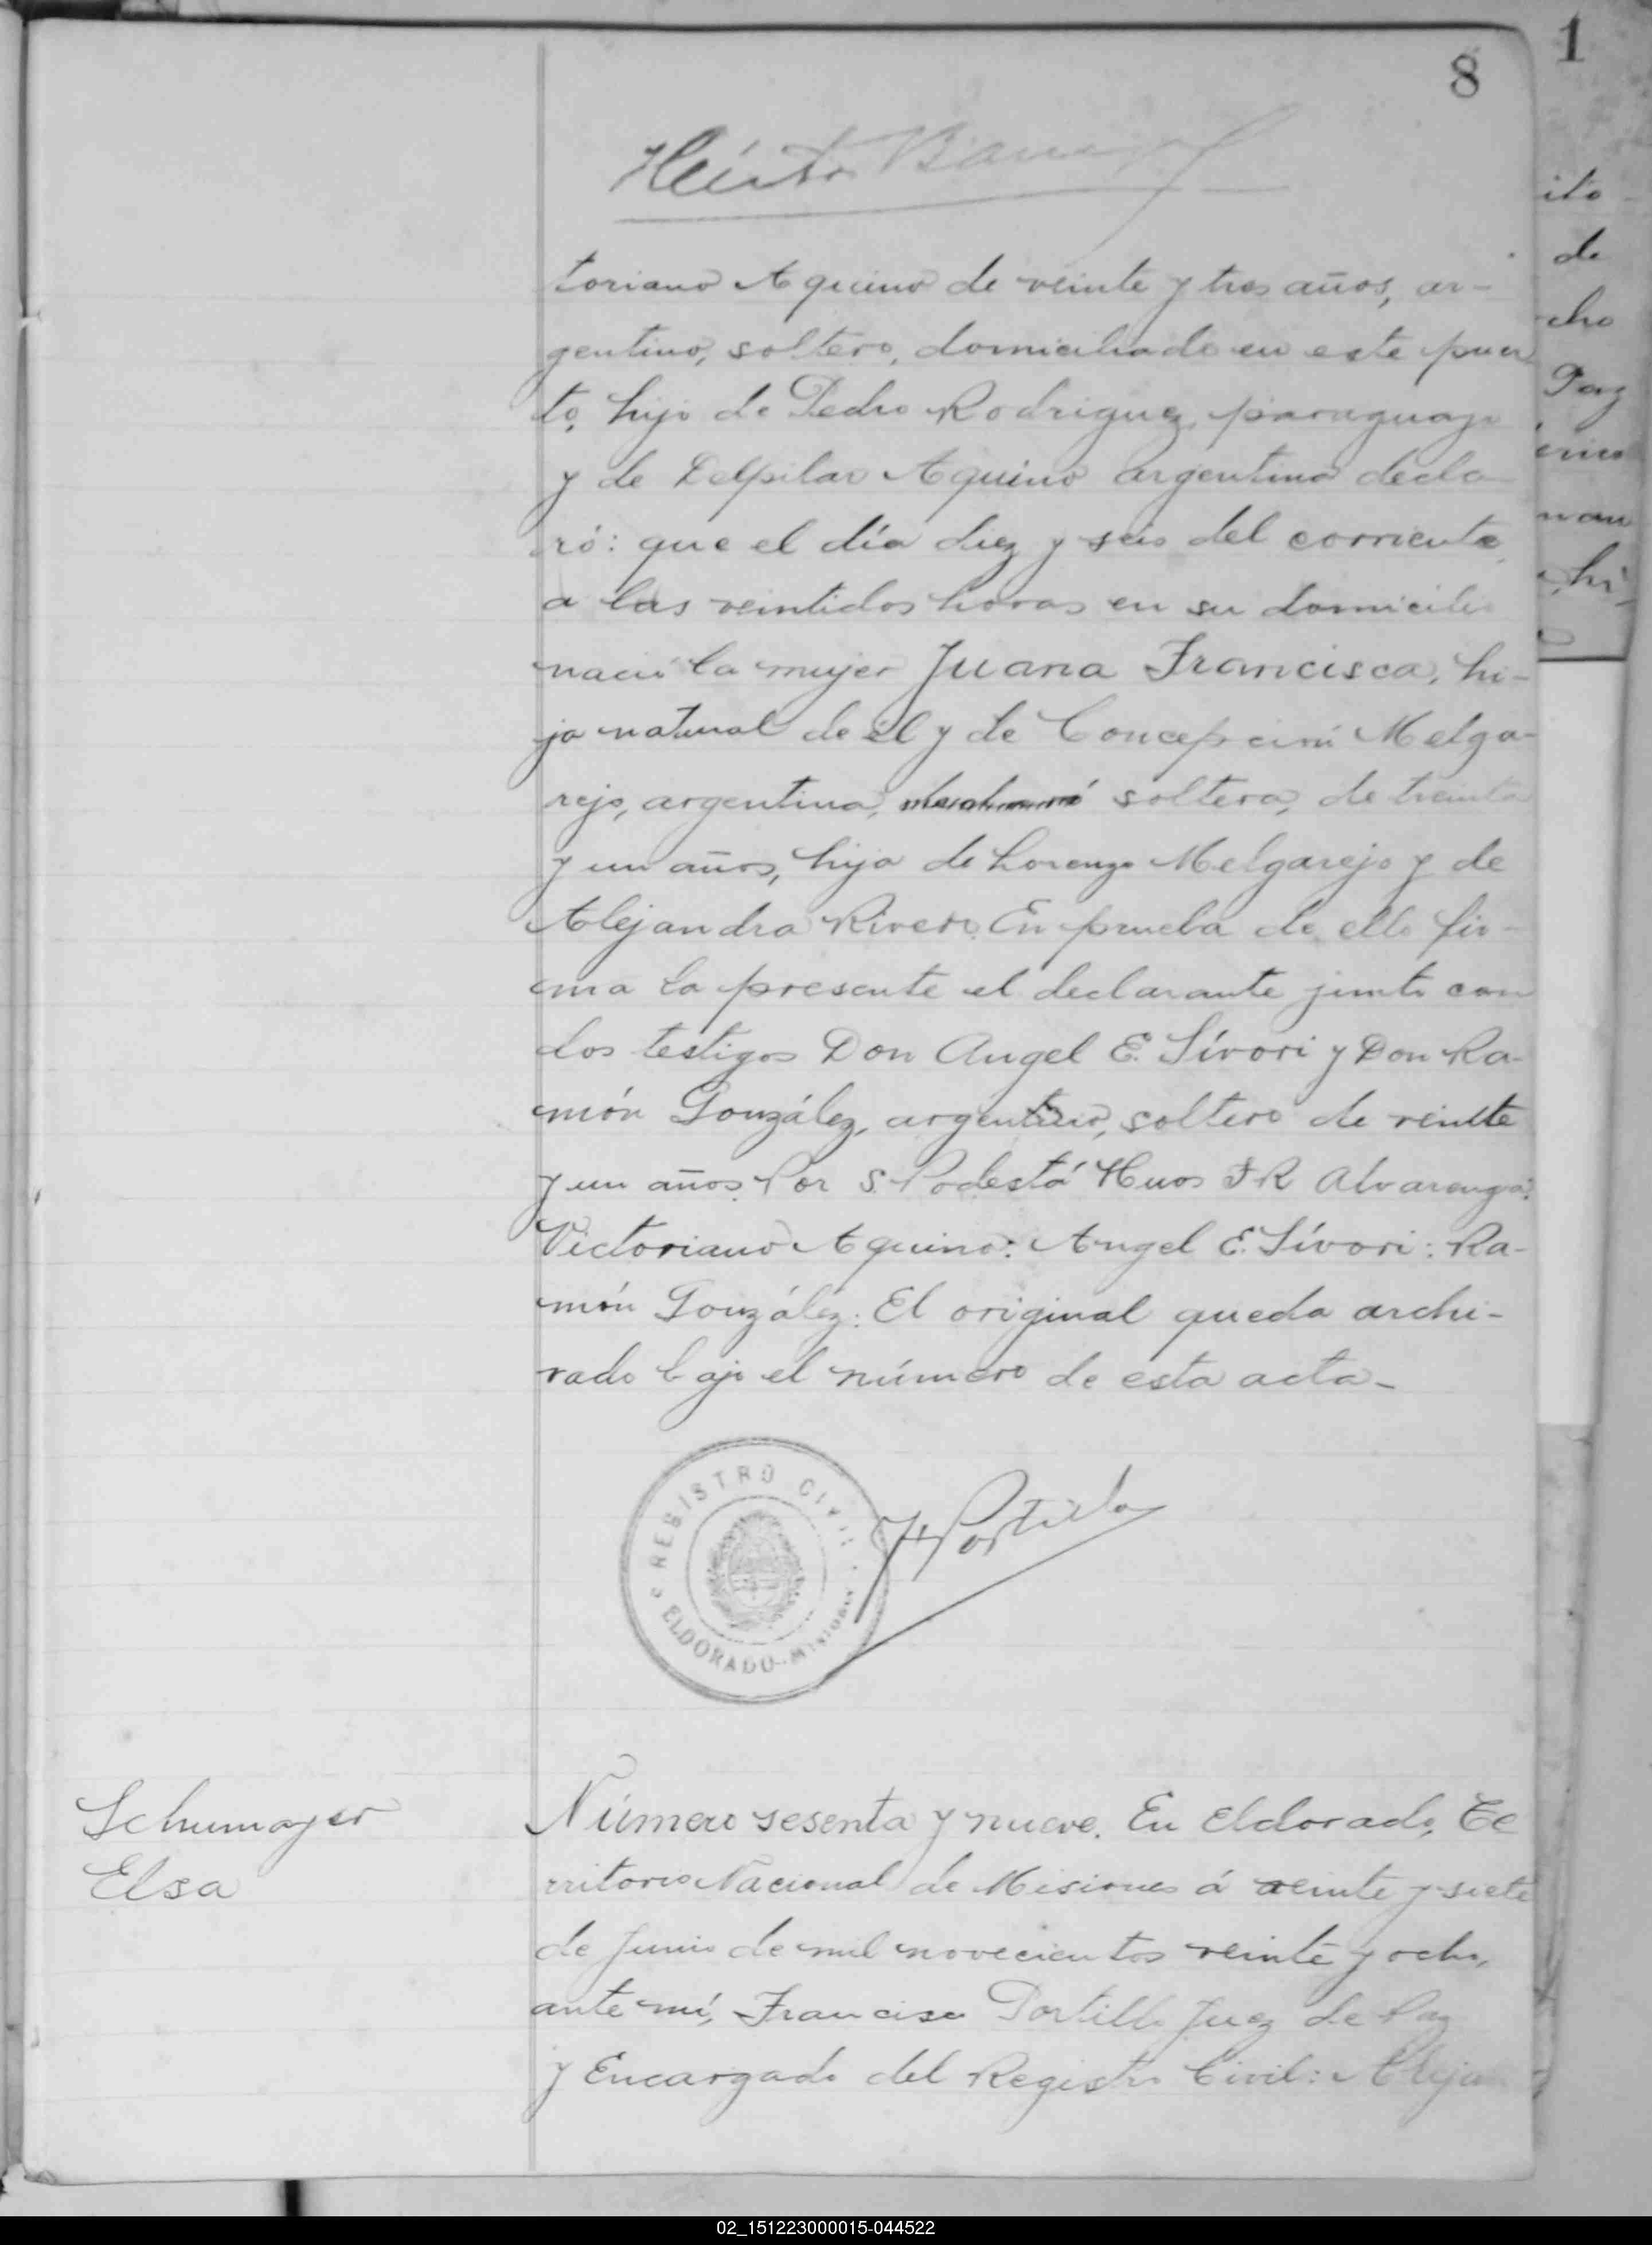 8
1
Héctor
toriano Aquino de veinte y tres años, ar-
gentino, soltero, domiciliado en este puer
to, hijo de Pedro Rodriguez, paraguayo
y de Delpilar Aquino argentina decla-
ró: que el día diez y seis del corriente
a las veintidos horas en su domicilio
nació la mujer Juana Francisca, hi-
ja natural de él y de Concepción Melga-
rejo, argentina, soltera, de treinta
y un años, hija de Lorenzo Melgarejo y de
Alejandra Rivero. En prueba de ello fir-
ma la presente el declarante junto con
los testigos Don Angel E. Sívori y Don Ra-
món González, argentino, soltero de veinte
y un años. Por S. Podestá Hnos F R Alvarenga:
Victoriano Aquino: Angel E. Sívori: Ra-
món González: El original queda archi-
vado bajo el número de esta acta-
REGISTRO CIVIL
ELDORADO - Misiones
F Portillo
Schumajer
Elsa
Número sesenta y nueve. En Eldorado, Te
rritorio Nacional de Misiones á veinte y siete
de Junio de mil novecientos veinte y ocho,
ante mí, Francisco Portillo Juez de Paz
y Encargado del Registro Civil: Alejan
ito
de
cho
Paz
hi
02_151223000015-044522